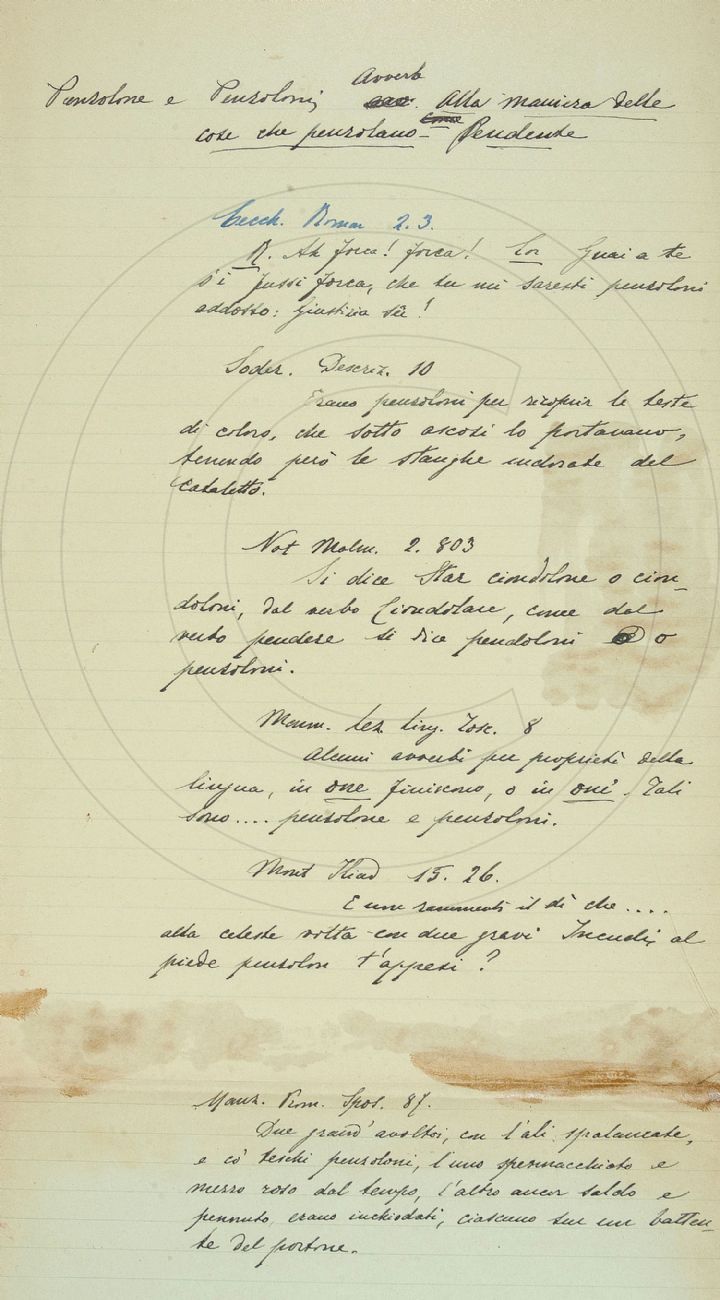 Penzolone e Penzoloni, Avverb. Alla maniera delle
cose che penzolano – Pendente
Cecch. Roman 2. 3.
R. Ah forca! forca! Lor Guai a te
s'i fussi forca, che tu mi saresti penzoloni
addosso: Giustizia sù!
Soder. Descriz. 10
Erano penzoloni per ricoprir le teste
di coloro, che sotto ascosi lo portavano,
tenendo però le stanghe indorate del
cataletto.
Not Malm. 2. 803
Si dice Star ciondolone o cion-
doloni, dal verbo Ciondolare, come dal
verbo pendere si dice pendoloni o
penzoloni.
Manm. Lez. Ling. Tosc. 8
Alcuni avverbi per proprietà della
lingua, in one finiscono, o in oni. Tali
sono.... penzolone e penzoloni.
Mont Iliad 15. 26.
E non rammenti il dì che....
alla celeste volta con due gravi Incudi al
piede penzolon t'appesi?
Manz. Prom. Spos. 87.
Due grand'avoltoi, con l'ali spalancate,
e co' teschi penzoloni, l'uno spennacchiato e
mezzo roso dal tempo, l'altro ancor saldo e
pennuto, erano inchiodati, ciascuno sur un batten-
te del portone.